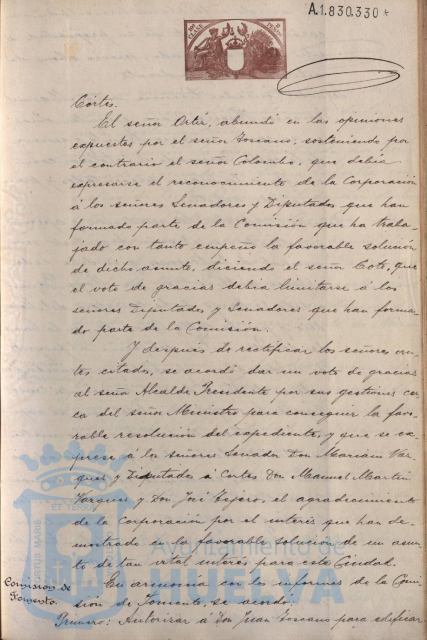 A.1.830.330
Córtes.
El señor Ortiz, abundó en las opiniones
expuestas por el señor Toscano, sosteniendo por
el contrario el señor Colombo, que debia
expresarse el reconocimiento de la Corporación
á los señores Senadores y Diputados que han
formado parte de la Comisión que ha traba-
jado con tanto empeño la favorable solución
de dicho asunto, diciendo el señor Coto, que
el voto de gracias debia limitarse á los
señores Diputados y Senadores que han forma-
do parte de la Comisión.
Y después de rectificar los señores an-
tes citados, se acordó dar un voto de gracias
al señor Alcalde Presidente por sus gestiones cer-
ca del señor Ministro para conseguir la favo-
rable resolución del expediente, y que se ex-
prese á los señores Senador Don Mariano Vaz-
quez y Diputados á Cortes Don Manuel Martin
Vazquez y Don José Tejero, el agradecimiento
de la Corporación por el interés que han de-
mostrado en la favorable solución de un asun-
to de tan vital interés para esta Ciudad.
Comisión de
Fomento.
En armonia con los informes de la Comi-
sión de Fomento, se acordó:
Primero: Autorizar á Don Juan Toscano para edificar
Ayuntamiento de
HUELVA